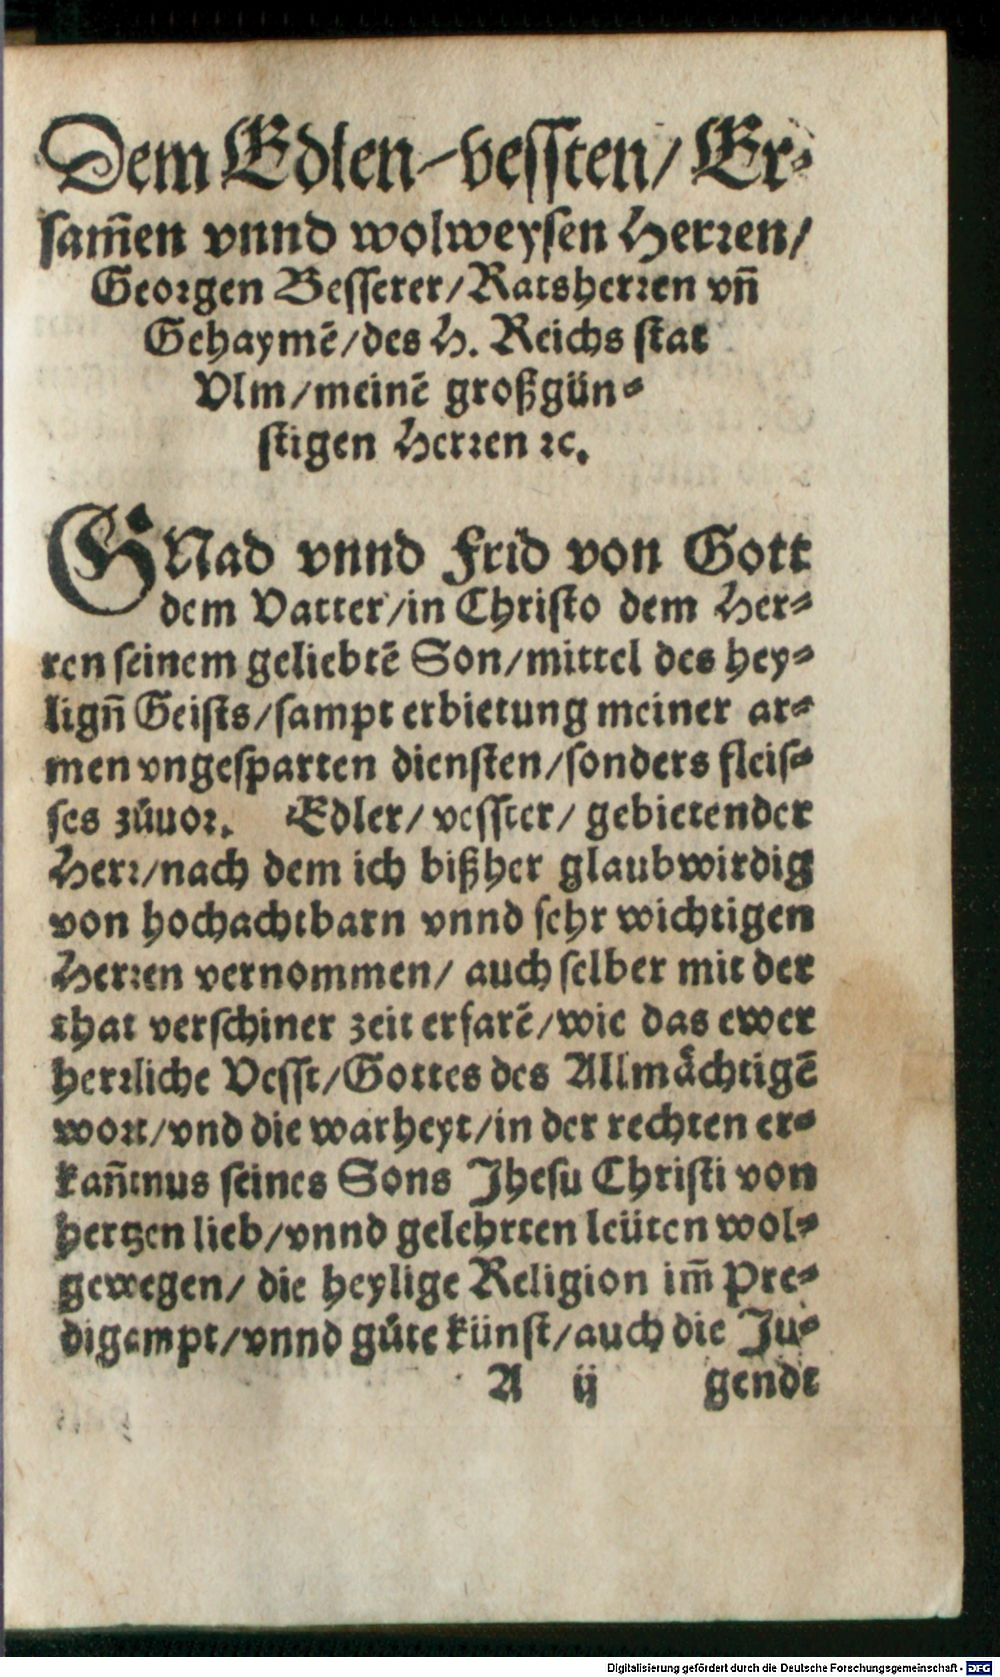 Dem Edlen-vessten/ Er-
sam̄en vnnd wolweysen Herren/
Georgen Besserer/Ratsherren vn̄
Gehaymē/des H. Reichs stat
Vlm/meinē großgün-
stigen Herren ꝛc.
GNad vnnd Frid von Gott
dem Vatter/in Christo dem Her-
ren seinem geliebtē Son/mittel des hey-
lign̄ Geists/sampt erbietung meiner ar-
men vngesparten diensten/sonders fleis-
ses zůuor. Edler/ vesster/ gebietender
Herr/nach dem ich bißher glaubwirdig
von hochachtbarn vnnd sehr wichtigen
Herren vernommen/ auch selber mit der
that verschiner zeit erfarē/wie das ewer
herrliche Vesst/Gottes des Allmåchtigē
wort/vnd die warheyt/in der rechten er-
kan̄tnus seines Sons Jhesu Christi von
hertzen lieb/vnnd gelehrten leüten wol-
gewegen/ die heylige Religion im̄ Pre-
digampt/vnnd gůte künst/auch die Ju-
A ij gendt
Digitalisierung gefördert durch die Deutsche Forschungsgemeinschaft - DFG